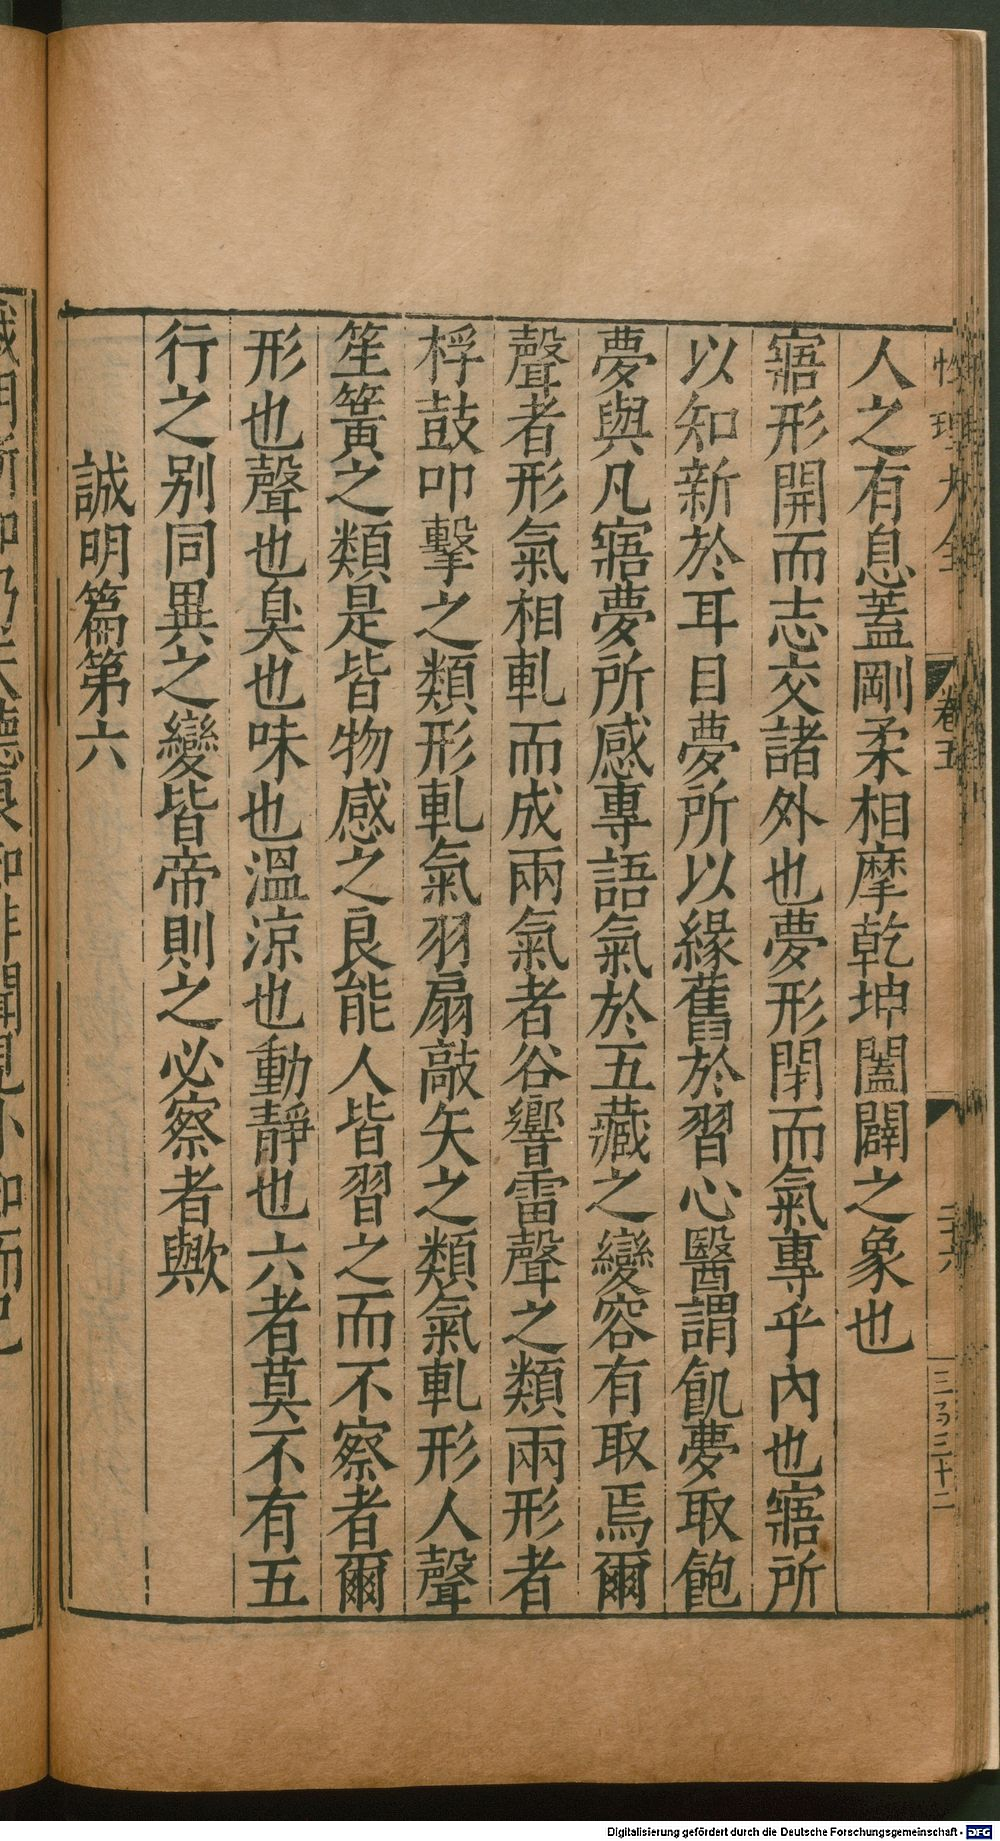 性理大全
卷五
二十六
人之有息蓋剛柔相摩乾坤闔闢之象也
寤形開而志交諸外也夢形閉而氣專乎內也寤所
以知新於耳目夢所以緣舊於習心醫謂飢夢取飽
夢與凡寤夢所感專語氣於五藏之變容有取焉爾
聲者形氣相軋而成兩氣者谷響雷聲之類兩形者
桴鼓叩擊之類形軋氣羽扇敲矢之類氣軋形人聲
笙簧之類是皆物感之良能人皆習之而不察者爾
形也聲也臭也味也溫涼也動靜也六者莫不有五
行之别同異之變皆帝則之必察者歟
誠明篇第六
誠明所知乃天德良知非聞見小知而已
Digitalisierung gefördert durch die Deutsche Forschungsgemeinschaft - DFG